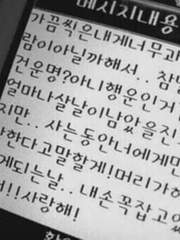 메시지내용
가끔씩은내게너무과
람이아닐까해서.. 참
건운명?아니행운인거
얼마나살날이남았을진
지만.. 사는동안너에게만
한다고말할게!머리가
게되는날.. 내손꼭잡고
!!사랑해!